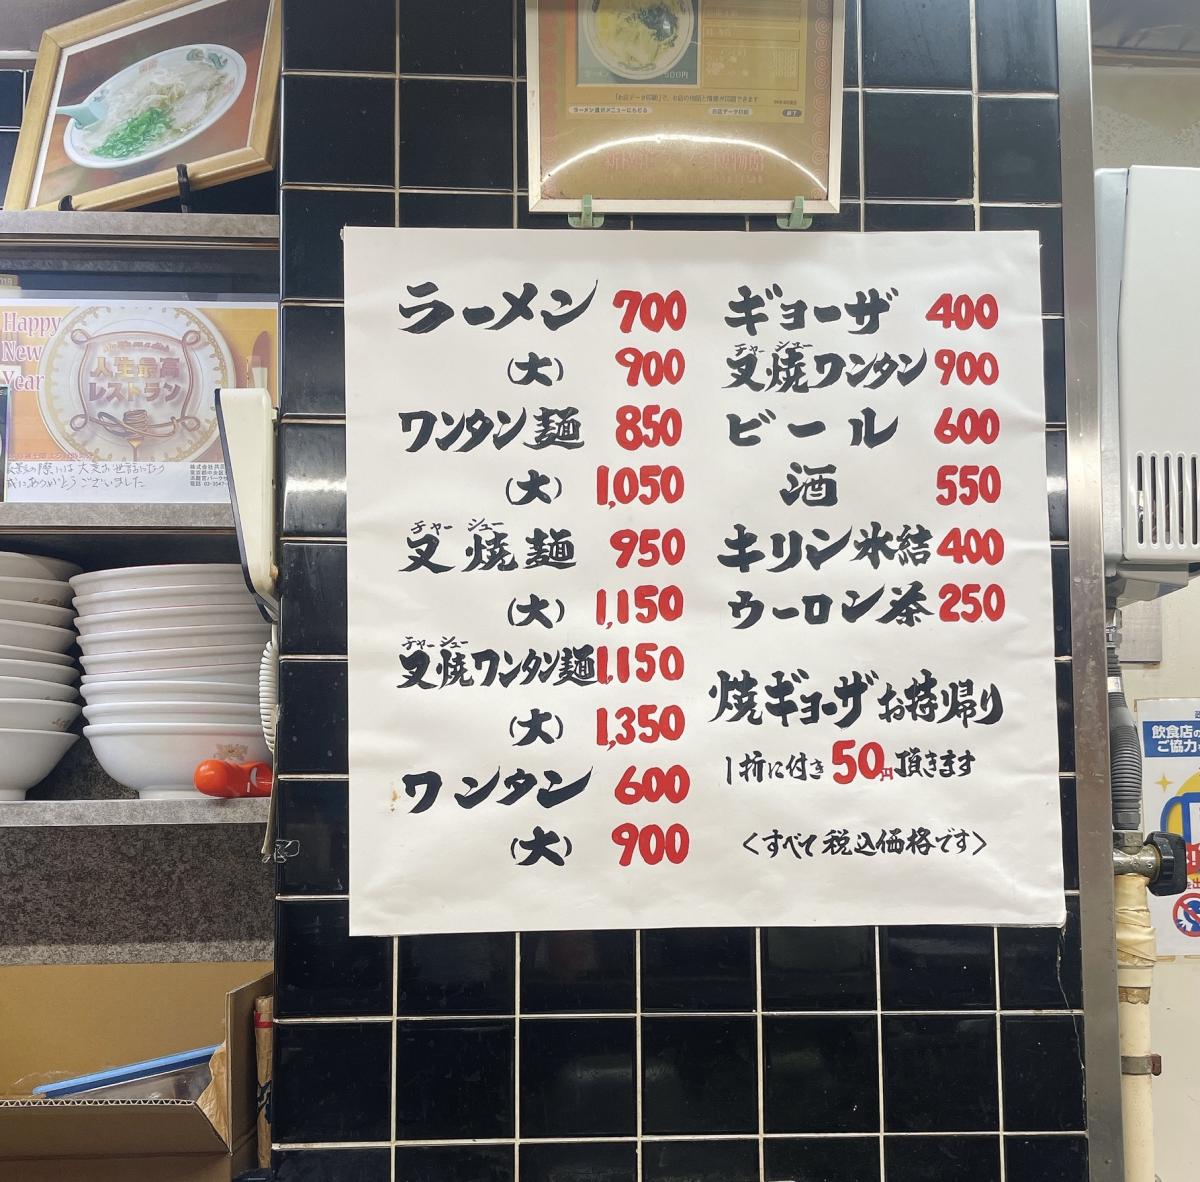 ラーメン 700
(大) 900
ワンタン麺 850
(大) 1,050
チャーシュー
叉焼麺 950
(大) 1,150
チャーシュー
叉焼ワンタン麺 1,150
(大) 1,350
ワンタン 600
(大) 900
ギョーザ 400
チャーシュー
叉焼ワンタン 900
ビール 600
酒 550
キリン氷結 400
ウーロン茶 250
焼ギョーザお持帰り
1折に付き50円頂きます
<すべて税込価格です>
Happy
New
Year
人生最高
レストラン
の際には大変お世話になり
誠にありがとうございました
ラーメン選択メニューにもどる
お店データ印刷
終了
飲食店の
ご協力